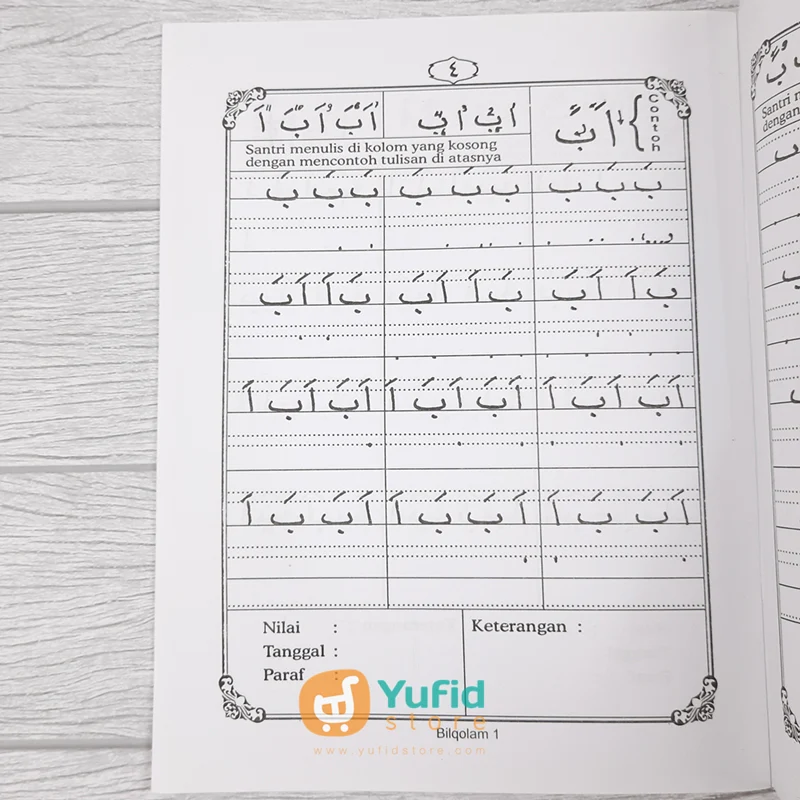 ٤
Contoh
اَ بَ
اَبَ اَبَ
اَبَ اَبَ اَ
Santri menulis di kolom yang kosong
dengan mencontoh tulisan di atasnya
بَ بَ بَ بَ بَ بَ بَ بَ بَ
بَ اَ اَبَ بَ اَ اَبَ بَ اَ اَبَ
اَبَ اَبَ اَ اَبَ اَبَ اَ اَبَ اَبَ اَ
اَبَ بَ اَ اَبَ بَ اَ اَبَ بَ اَ
Nilai :
Tanggal :
Paraf :
Keterangan :
Yufid
store
www.yufidstore.com
Bilqolam 1
Santri me
dengan